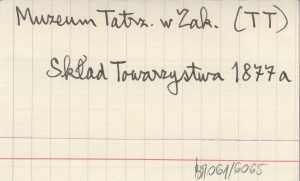 Muzeum Tatrz. w Zak. (TT)
Skład Towarzystwa 1877 a
BT061/6065